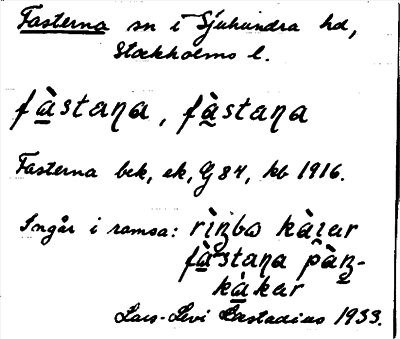 Fasterna sn i Sjuhundra hd,
Stockholms l.
fàstaṉa, fàstaṉa
Fasterna bek, ek, G 84, kb 1916.
Ingår i ramsa: rìŋbo kàrar
fàstaṉa pàn-
kàkar
Lars-Levi Læstadius 1933.